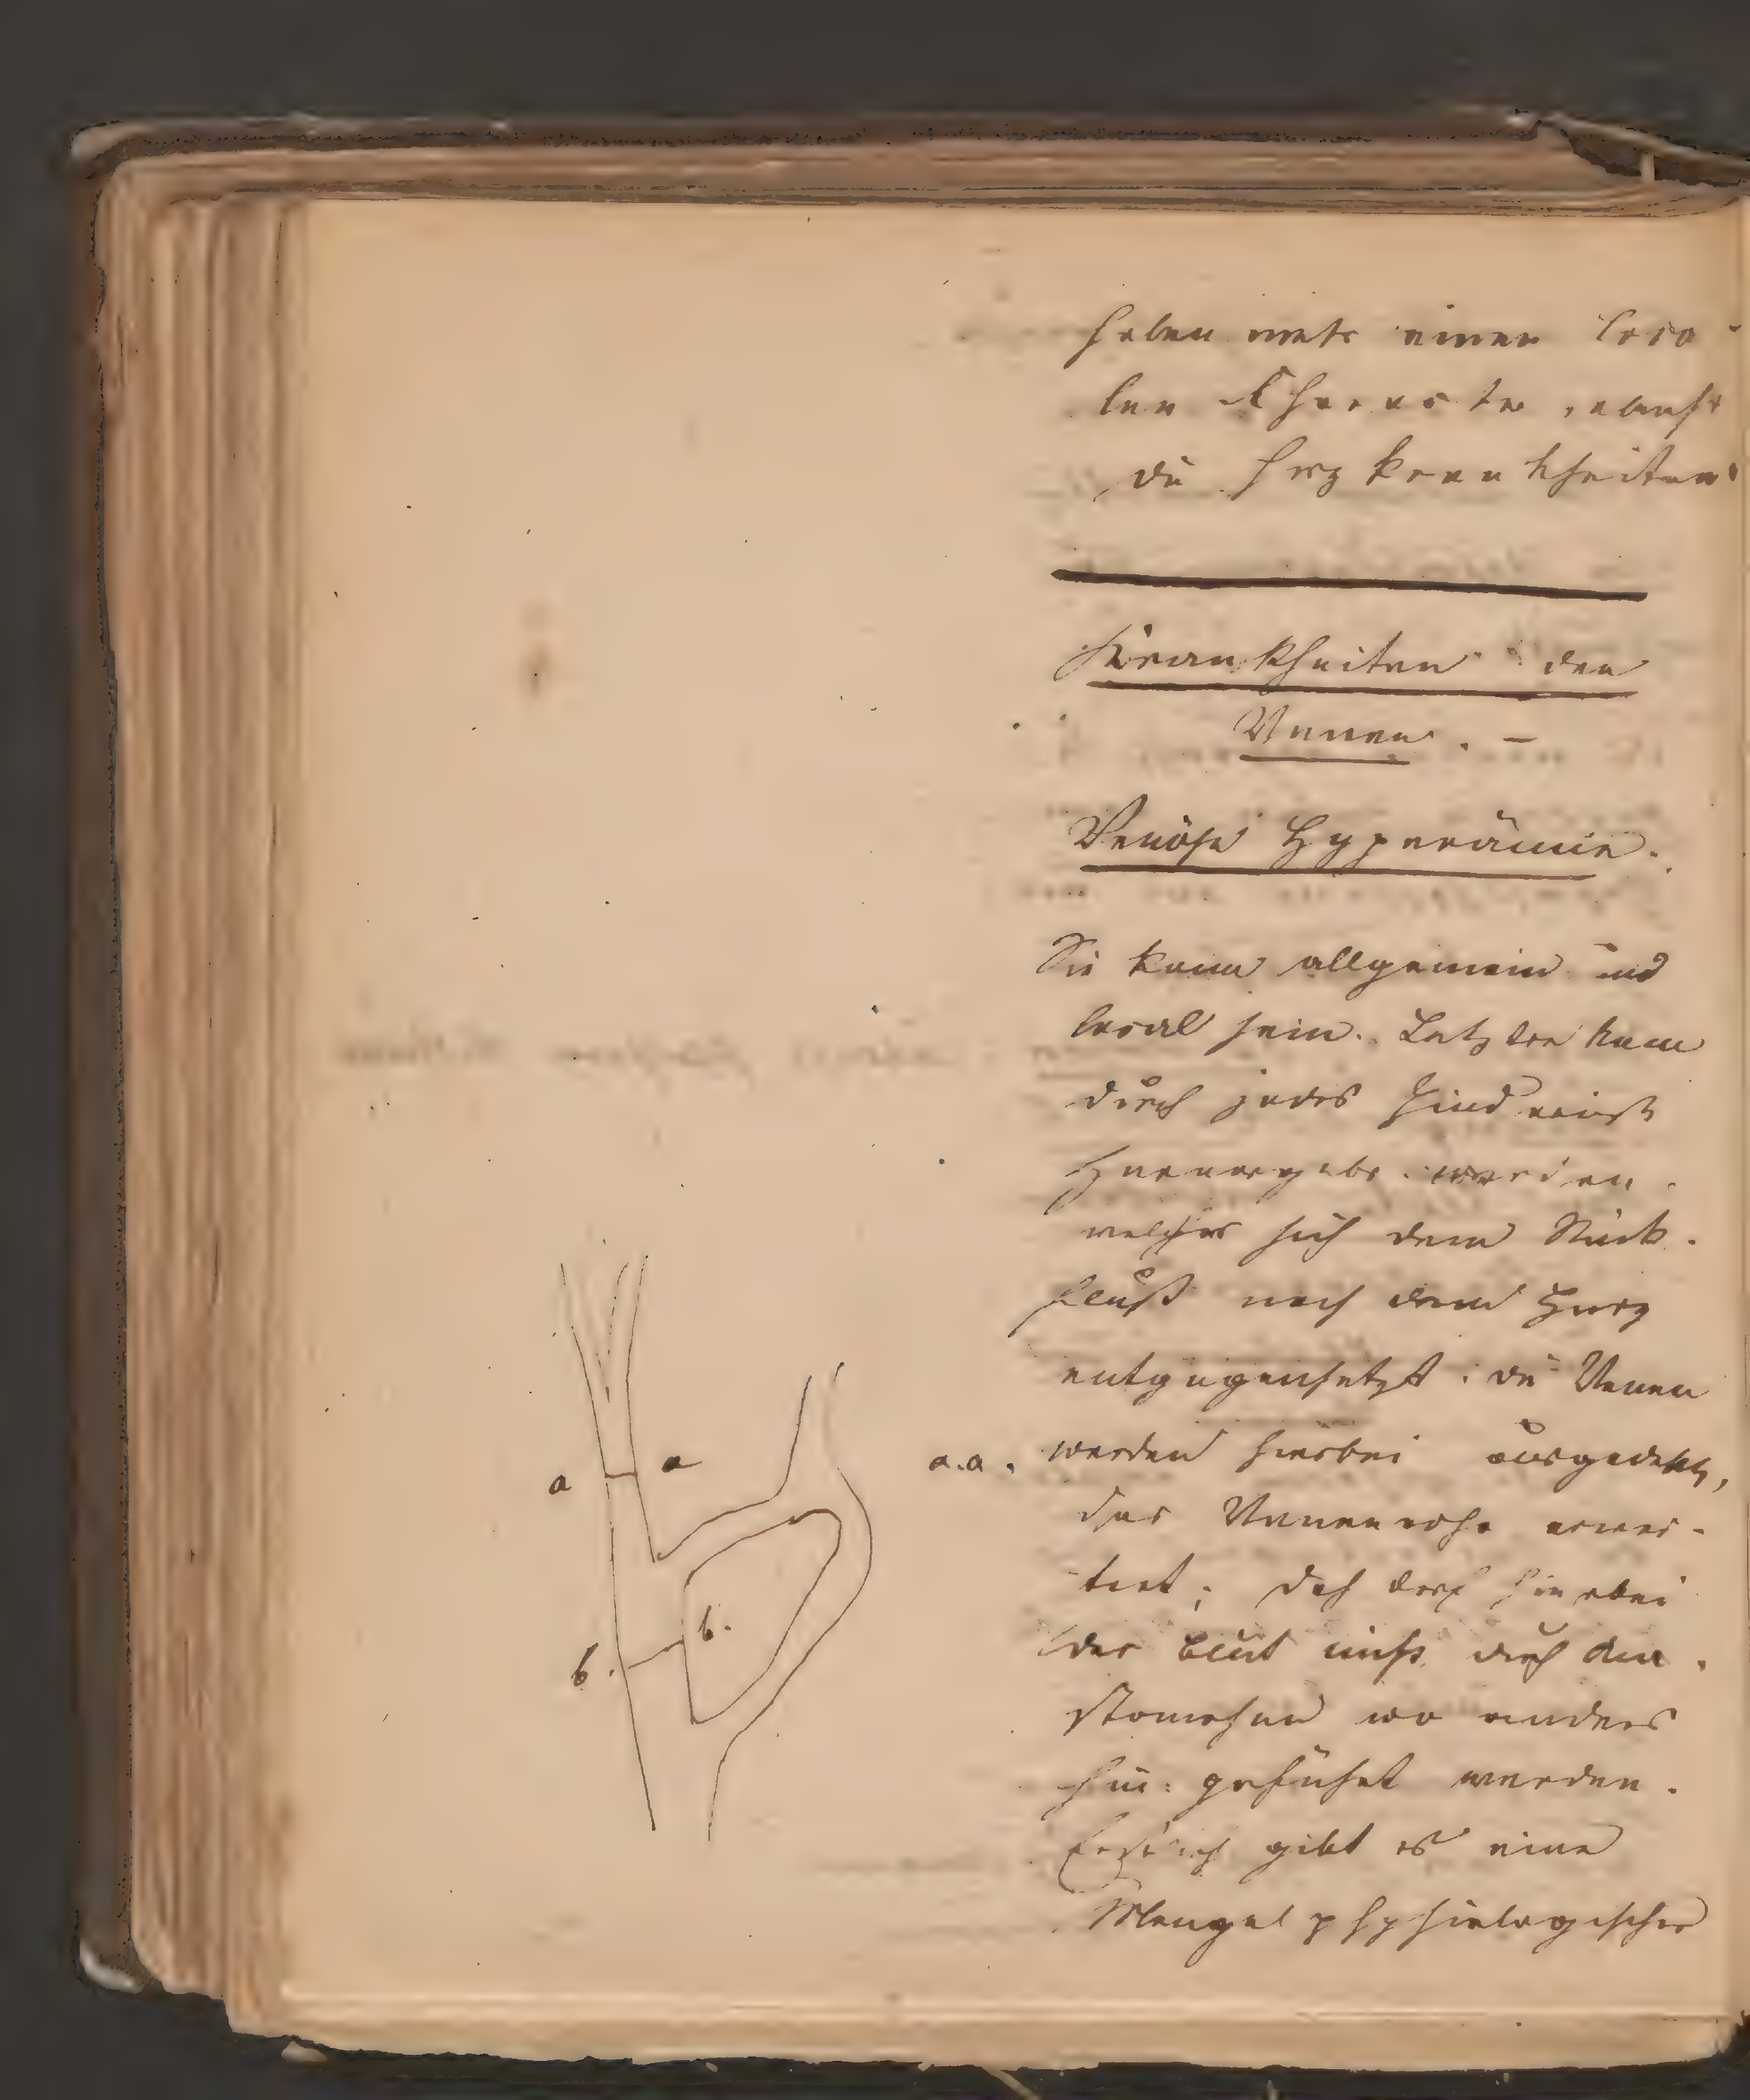 haben mehr einen loca-
len Character, ebenso
die Herzkrankheiten
Krankheiten der
Venen. –
Venöse Hyperämie.
Sie kann allgemein und
local sein. Letztere kann
durch jedes Hinderniß
werden
welches sich dem Rück-
fluß nach dem Herz
entgegensetzt; die Venen
a.a. werden hierbei ausgedehnt,
das Venenrohr erwei-
tert; doch darf hierbei
das Blut nicht durch Ana-
stomosen wo anders
hin geführt werden.
gibt es eine
Mengel physiologischer
a a
b. b.